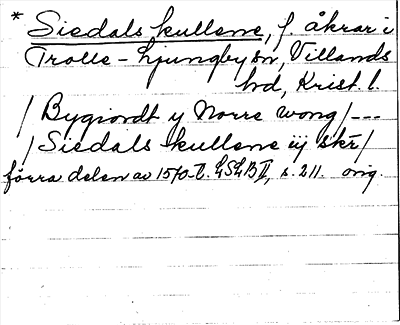 * Siedals kullene, f. åkrar i
Trolle-Ljungby sn, Villands
hd, Krist. l.
/ Bygiordt y Norre wong /---
/ Siedals kullene iij skr /
förra delen av 1570-t. LSLB II, s. 211. orig.